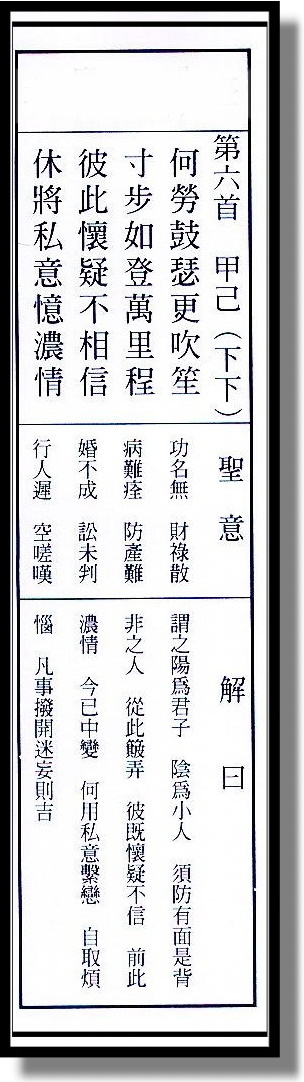 第六首 甲己(下下)
何勞鼓瑟更吹笙
寸步如登萬里程
彼此懷疑不相信
休將私意憶濃情
聖意
功名無 財祿散
病難痊 防產難
婚不成 訟未判
行人遲 空嗟嘆
解曰
謂之陽為君子 陰為小人 須防有面是背
非之人 從此簸弄 彼既懷疑不信 前此
濃情 今已中變 何用私意繫戀 自取煩
惱 凡事撥開迷妄則吉